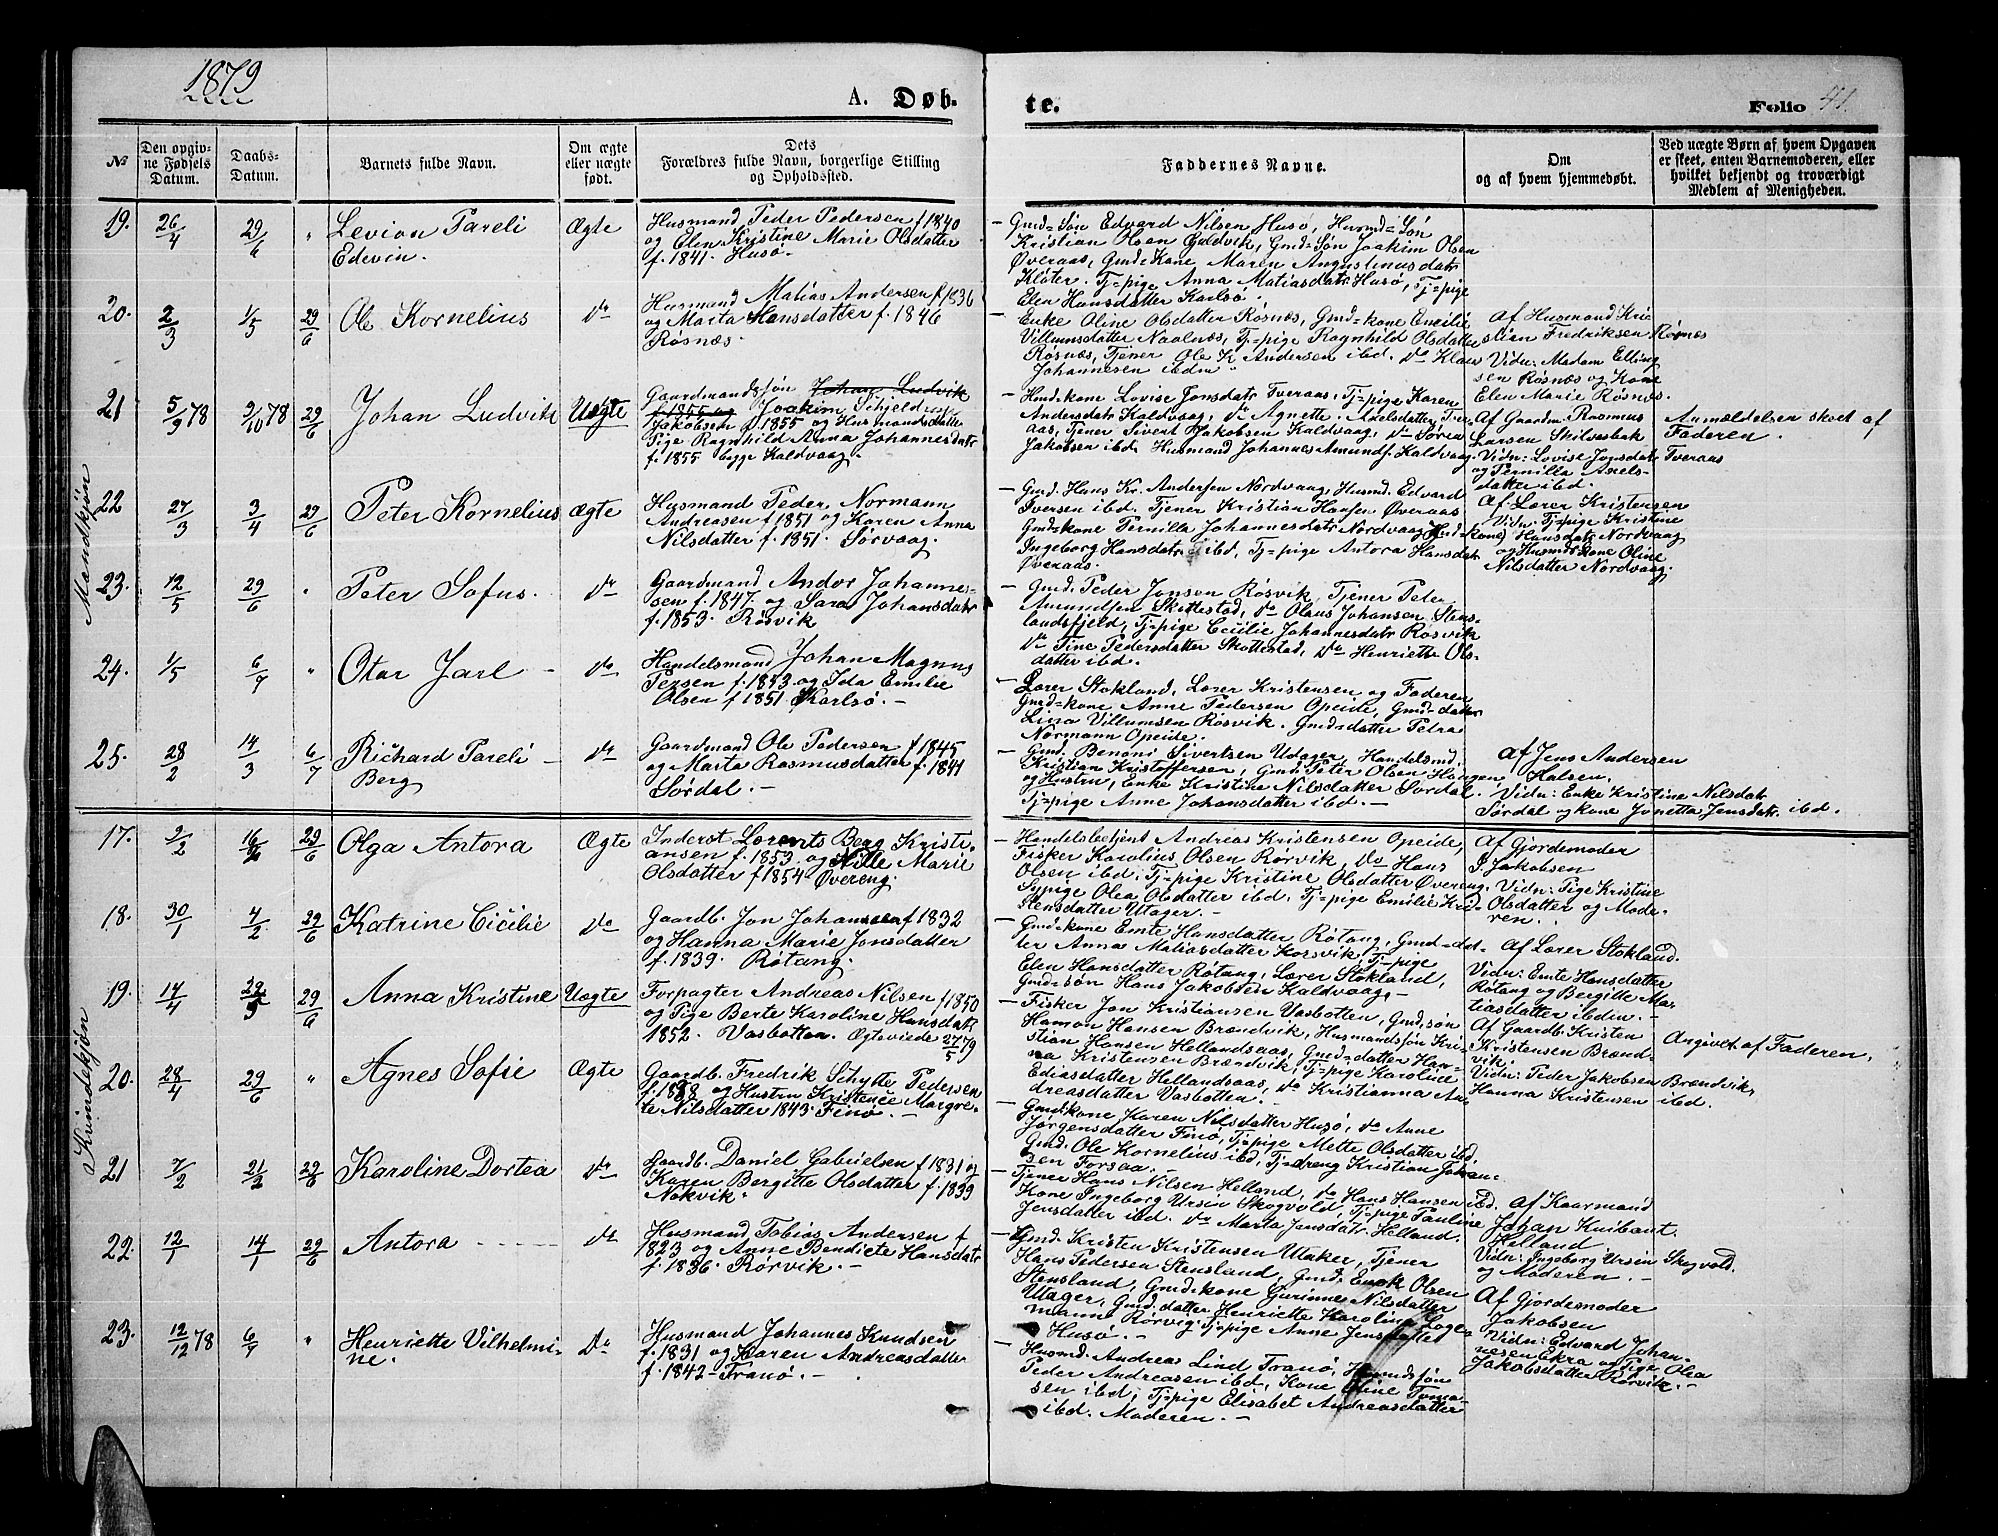 1879
A. Døb-
te.
Folio 41.
№
Den opgiv-
ne Fødsels
Datum.
Daabs-
Datum.
Barnets fulde Navn.
Om ægte
eller uægte
født.
Dets
Forældres fulde Navn, borgerlige Stilling
og Opholdssted.
Faddernes Navne.
Om
og af hvem hjemmedøbt.
Ved uægte Børn af hvem Opgaven
er skeet, enten Barnemoderen, eller
hvilket bekjendt og troværdigt
Medlem af Menigheden.
Mandkjøn
19. 26/4 29/6 "
Levion Pareli
Edevin.
Ægte
Husmand Peder Pedersen f 1840
og Elen Kristine Marie Olsdatter
f. 1841. Husø.
- Gmd-Søn Edvard Nilsen Husø, Husmd=Søn
Kristian Olsen Guldvik, Gmd=Søn Joakim Olsen
Øveraas, Gmd:Kone Maren Augustinusdatr
Kløter. Tj=pige Anna Matiasdatr Husø, Tj=pige
Elen Hansdatter Karlsø.
20. 2/3 1/5 29/6
Ole Kornelius
do
Husmand Matias Andersen f 1836
og Marta Hansdatter f. 1846
Røsnæs.
- Enke Oline Olsdatter Røsnæs, Gmd=kone Encilie
Villumsdatter Naalnæs, Tj=pige Ragnhild Olsdatter
Røsnæs, Tjener Ole K. Andersen ibd. do Klaus
Johannesen ibdn
Af Husmand Kri-
stian Fredriksen Røsnæs
Vidn: Madam Elling
sen Røsnæs og Kone
Elen Marie Røsnæs.
21 5/9 78 9/10 78 29/6
Johan Ludvik
Uægte
Gaardmandssøn Johan Ludvik
f. 1855 og Joakim Schjeldrup
Jakobsen f 1855 og Husmandsdatter
Pige Ragnhild Anna Johannesdatr
f. 1855 begge Kaldvaag.
- Hmd:kone Lovise Jonsdatr Tveraas, Tj-pige Karen
Andersdatr Kaldvaag, do Agnette Axelsdatter Tver-
aas, Tjener Sivert Jakobsen Kaldvaag, do Søren
Jakobsen ibd. Husmand Johannes Amundf. Kaldvaag.
Af Gaardm: Rasmus
Larsen Skilvasbak
Vidn: Lovise Jonsdatr Tveraas
og Pernilla Axels-
datter ibd.
Anmældelsen skeet af
Faderen.
22 27/3 3/4 29/6
Peter Kornelius
Ægte
Husmand Peder Normann
Andreasen f 1851 og Karen Anna
Nilsdatter f. 1851. Sørvaag.
- Gmd. Hans Kr. Andersen Nordvaag, Husmd. Edvard
Iversen ibd. Tjener Kristian Hansen Øveraas
Gmd:kone Pernilla Johannesdatr Nordvaag Hmd-kone
Ingeborg Hansdatr ibd, Tj=pige Antora Hansdatr
Øveraas.
Af Lærer Kristensen
Vidn: Tj=pige Kristine
Hansdatr Nordvaag
og Husmdskone Oline
Nilsdatter Nordvaag.
23. 12/5 29/6 "
Peter Sofus.
do
Gaardmand Andor Johanne-
sen f. 1847. og Sara Johansdatr
f. 1853. Røsvik
- Gmd. Peder Jonsen Røsvik, Tjener Peter
Amundsen Skottestad, do Olaus Johansen Stens-
landsfjeld, Tj=pige Cecilie Johannesdatr Røsvik
do Tine Pedersdatter Skottestad, do Henriette Ols-
datter ibd.
24. 1/5 6/7 "
Otar Jarl -
do
Handelsmand Johan Magnus
Persen f. 1853. og Ida Emilie
Olsen f 1851. Karlsø. -
- Lærer Stokland, Lærer Kristensen og Faderen
Gmd=kone Anne Pedersen Opeide, Gmd-datter
Lina Villumsen Røsvik. Gmd=datter Petra
Normann Opeide.
25. 28/2 14/3 6/7
Richard Pareli -
Berg
do
Gaardmand Ole Pedersen f 1845
og Marta Rasmusdatter f. 1841
Sørdal. -
- Gmd. Benoni Sivertsen Udager, Handelsmd.
Kristian Kristoffersen, Gmd. Peter Olsen Haugen
og Hustru, Enke Kristine Nilsdatter Sørdal.
Tj=pige Anne Johansdatter ibd. -
Af Jens Andersen
Halsen.
Vidn: Enke Kristine Nilsdatr
Sørdal og kone Jonetta Jensdatr. ibd.
Kvindekjøn
17. 2/2 29/6
Olga Antora
Ægte
Inderst Lorents Berg Kristi-
ansen f. 1853 og Nille Marie
Olsdatter f 1854 Øvereng.
- Handelsbetjent Andreas Kristensen Opeide,
Fisker Karolius Olsen Rørvik, do Hans
Olsen ibd, Tj=pige Kristine Olsdatter Øvereng.
Sypige Olea Olsdatter ibd, Tj=pige Emilie Kri-
stensdatter Utager. -
Af Gjordemoder
J. Jakobsen
Vidn: Pige Kristine
Olsdatter og Mode-
ren.
18. 30/1 4/2 29/6
Katrine Cicilie
do
Gaardb. Jon Johansen f 1832
og Hanna Marie Jonsdatter
f. 1839. Røtang.
- Gmd=kone Emte Hansdatter Røtang, Gmd=dat-
ter Anna Matiasdatter Korsvik, Tj=pige
Elen Hansdatter Røtang, Lærer Stokland,
Gmd:søn Hans Jakobsen Kaldvaag. -
Af Lærer Stokland.
Vidn: Emte Hansdatter
Røtang og Bergitte Ma-
tiasdatter ibidm. -
19. 14/4 29/6
Anna Kristine
Uægte
Forpagter Andreas Nilsen f 1850
og Pige Berte Karoline Hansdatr
1852. Vasbotten. Ægteviede 27/5 79
- Fisker Jon Kristiansen Vasbotten, Gmd,søn
Hamon Hansen Brændvik, Husmandssøn Kri-
stian Hansen Hellandsaas, Gmd=datter Han-
na Kristensen Brændvik, Tj=pige Karoline
Ediasdatter Hellandsaas, do Kristianna An-
dreasdatter Vasbotten. -
Af Gaardb. Kristen
Kristensen Brænd-
vik
Vidn: Peder Jakobsen Brændvik,
Hanna Kristensen ibd.
Angivet af Faderen.
20. 28/4 29/6 "
Agnes Sofie
Ægte
Gaardb. Fredrik Schytte Pedersen
f. 1838 og Hustru Kristence Margre-
te Nilsdatter 1843. Finø. -
- Gmd:kone Karen Nilsdatter Husø, do Anne
Jørgensdatter Finø, Tj=pige Mette Olsdatter ibd.
Gmd. Ole Kornelius ibd, Tj=dreng Kristian Johan-
sen Forsaa. -
21 7/2 21/2 29/6
Karoline Dortea
do
Gaardb. Daniel Gabrielsen f 1831 og
Karen Bergitte Olsdatter f. 1839
Nokvik
- Tjener Hans Nilsen Helland, do Hans Hansen ibd.
Kone Ingeborg Ursin Skogvold, Tj=pige Pauline
Jensdatter ibd. do Marta Jensdatr. Helland.
Af Kaarmand
Johan Knibant
Helland
Vidn: Ingeborg Ursin Skogvold.
og Moderen. -
22. 12/1 14/1 29/6
Antora
do
Husmand Tobias Andersen f
1823 og Anne Bendicte Hansdatr
f. 1836. Rørvik. -
- Gmd. Kristen Kristensen Utaker, Tjener
Hans Pedersen Stensland, Gmd. Enok Olsen
Stensland, Gmd:kone Gurinne Nilsdatter
Utager, Gmd.datter Henriette Karoline Loge-
mann Rørvig. Tj=pige Anne Jensdatter
Husø. -
Af Gjordemoder
Jakobsen
Vidn: Edvard Johan-
nesen Ekra og Pige Olea
Jakobsdatter Rørvik. -
23. 12/12 78 6/7 "
Henriette Vilhelmi-
ne.
do
Husmand Johannes Knudsen
f. 1831 og Karen Andreasdatter
f. 1842 - Tranø. -
- Husmd. Andreas Lind Tranø, Husmdssøn
Peder Andreasen ibd, Kone Oline Toma-
sen ibd, Tj=pige Elisabet Andreasdatter
ibd. Moderen. -